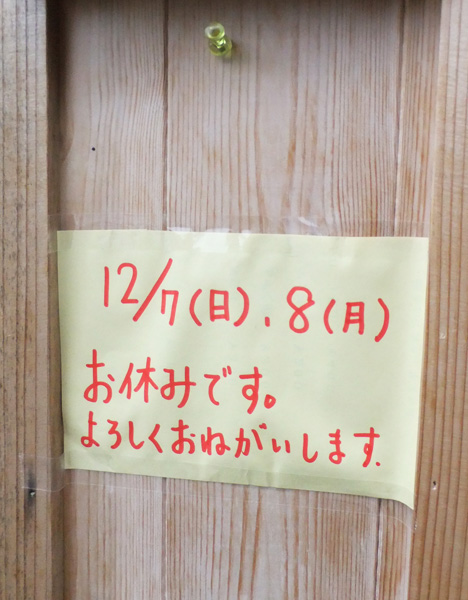 12/7(日).8(月)
お休みです。
よろしくおねがいします.